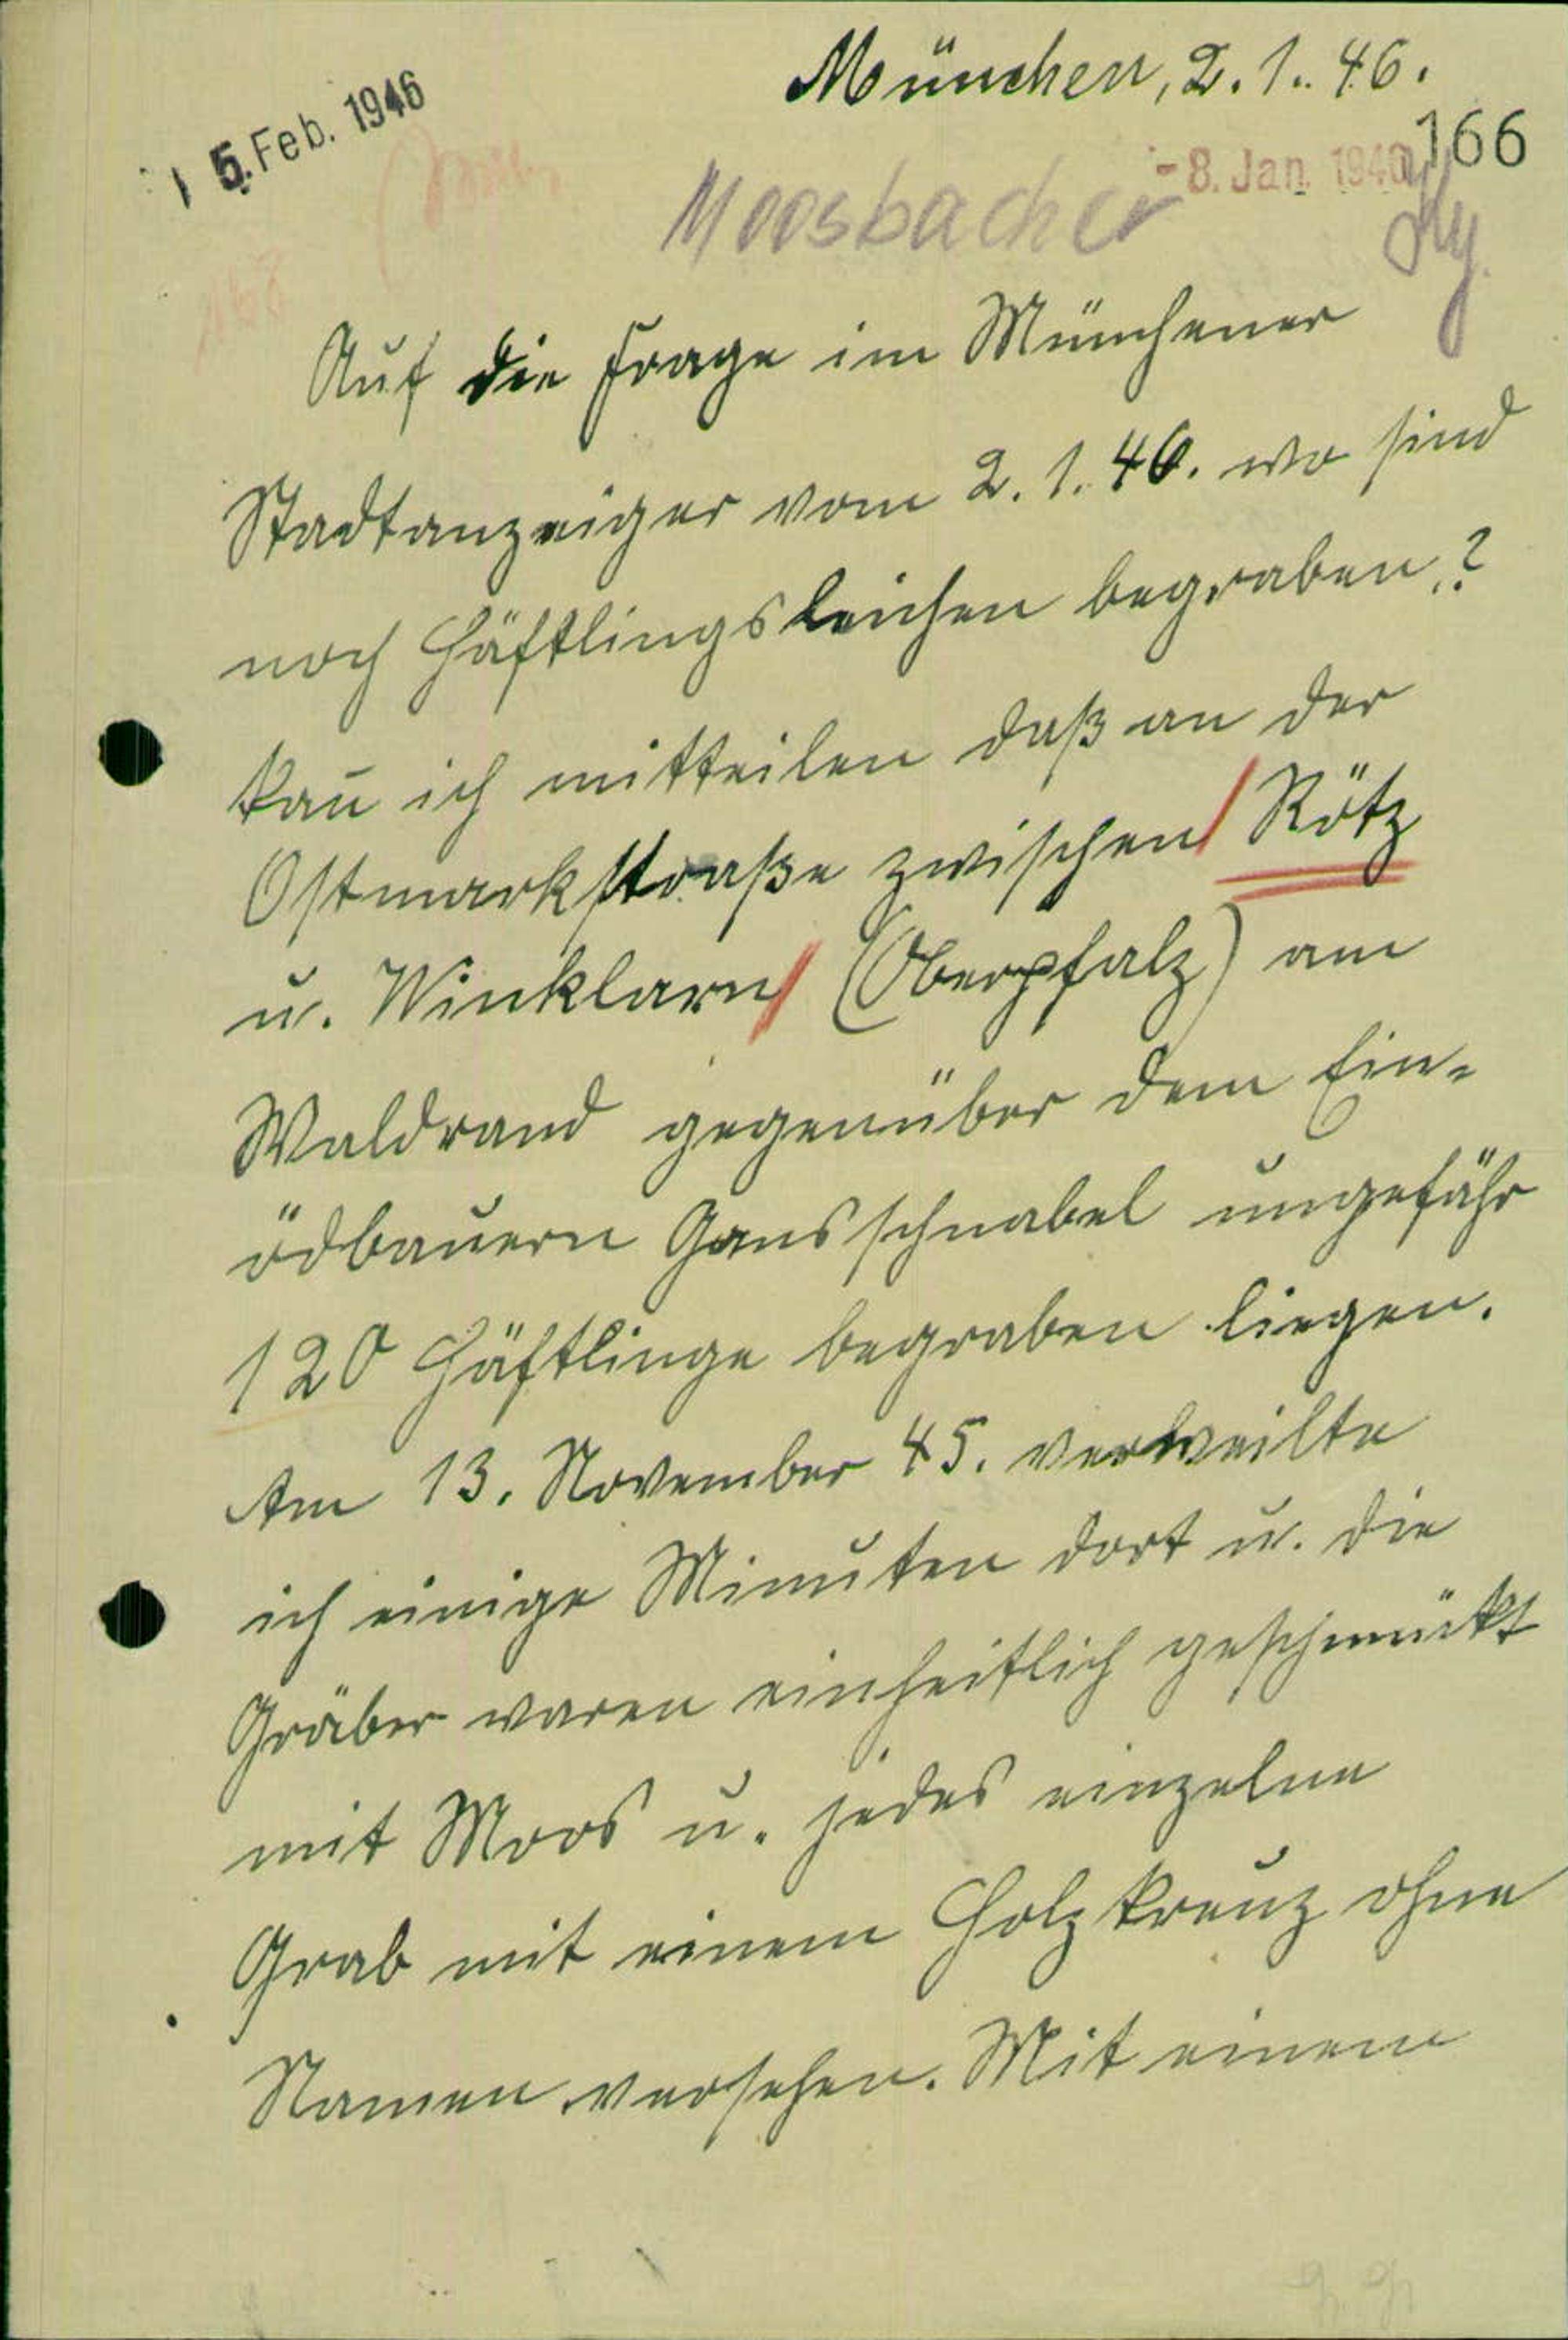 München, 2.1.46.
15. Feb. 1946
166
-8. Jan. 1946
Moosbacher
Auf die Frage im Münchener
Stadtanzeiger vom 2.1.46. wo sind
noch Häftlingsleichen begraben,?
kan̄ ich mitteilen daß an der
Ostmarkstraße zwischen Rötz
u. Winklarn (Oberpfalz) am
Waldrand gegenüber dem Ein-
ödbauern Gansschnabel ungefähr
120 Häftlinge begraben liegen.
Am 13. November 45. verweilte
ich einige Minuten dort u. die
Gräber waren einheitlich geschmückt
mit Moos u. jedes einzelne
Grab mit einem Holzkreuz ohne
Namen versehen. Mit einem